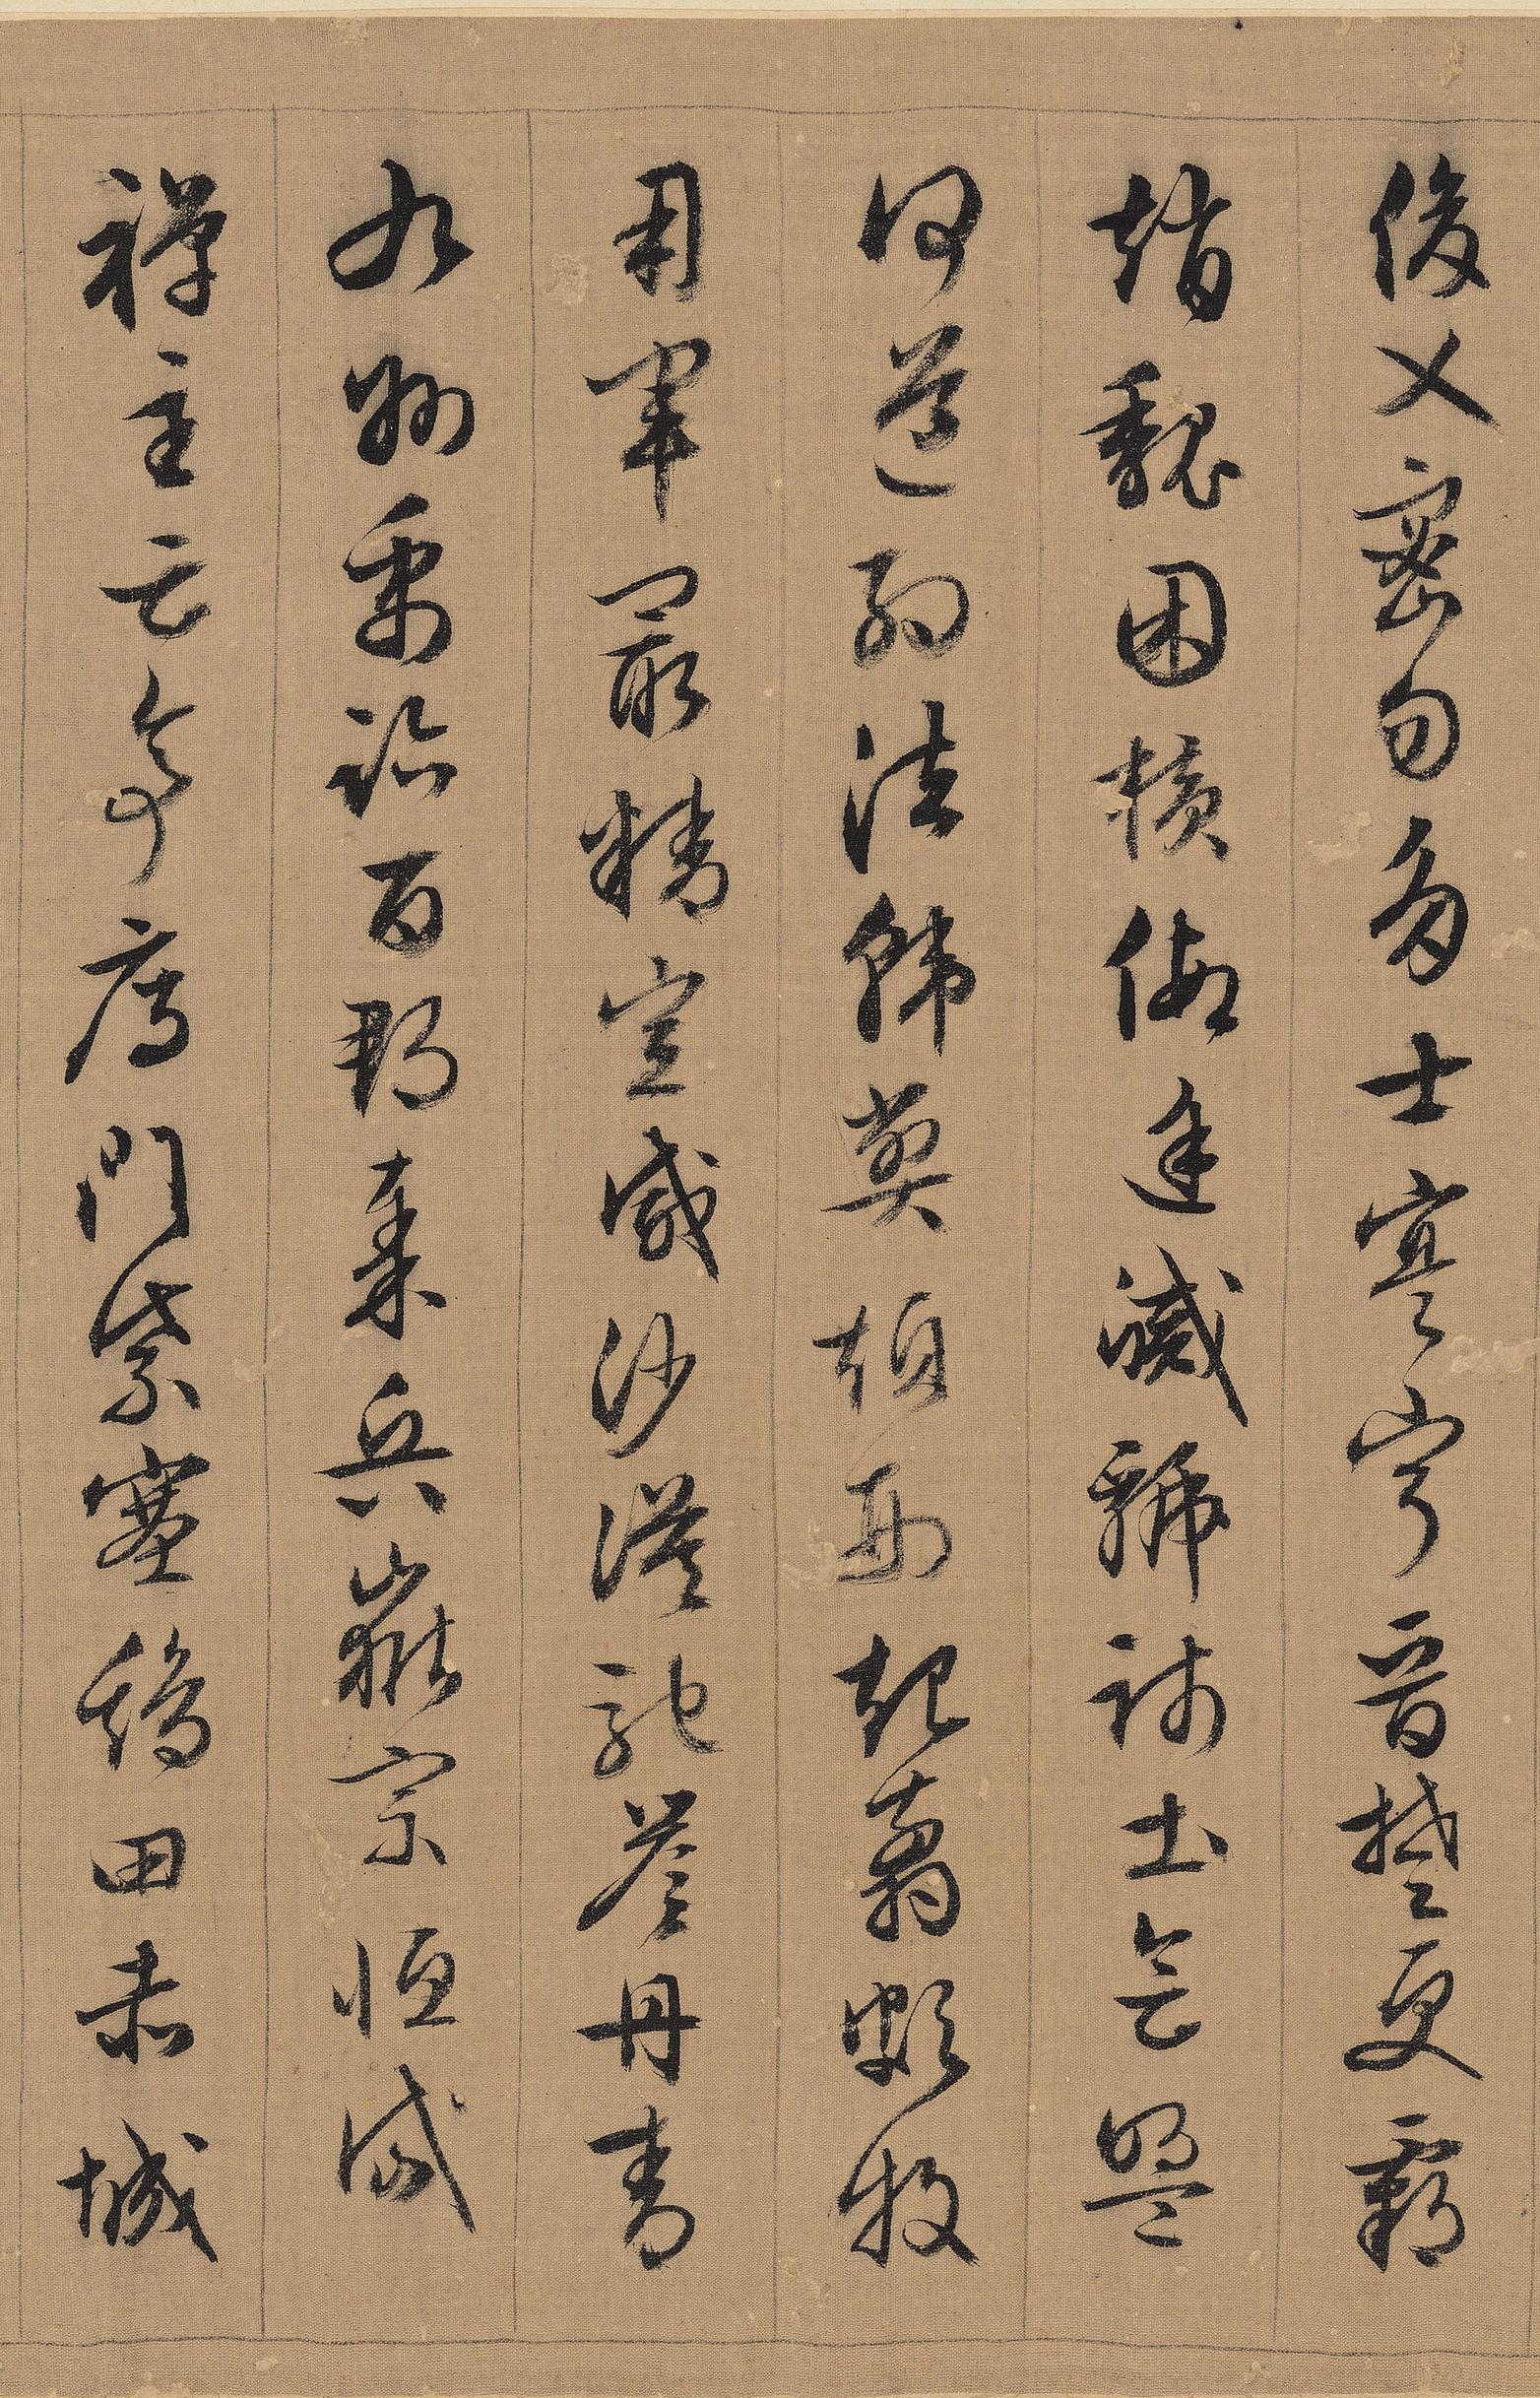 俊乂密勿多士寔寧晉楚更霸
趙魏困橫假途滅虢踐土會盟
何遵約法韓弊煩刑起翦頗牧
用軍最精宣威沙漠馳譽丹青
九州禹跡百郡秦并嶽宗恒岱
禪主云亭雁門紫塞雞田赤城